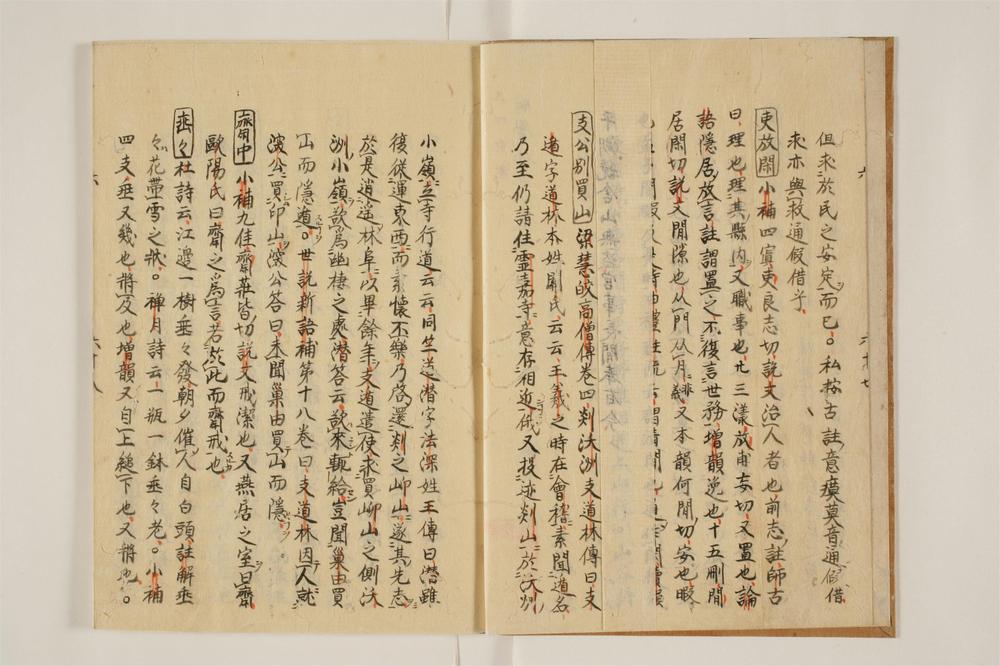 但求於民之安定而已。私松古註意瘼莫音通假借
求亦與救通假借乎
吏放閑 小補四寘吏良志切說文治人者也前志註師古
曰理也理其縣内又職事也廿三漾放甫妄切又置也論
語隱居放言註謂置之不復言世務増韻逸也十五刪閒
居閑切說文閒隙也从門从月 又本韻何閒切安也暇
支公別買山 梁慧皎高僧傳卷四剡沃洲支道林傳曰支
遁字道林本姓関氏云云王羲之時在會稽素聞遁名
乃至仍請住靈嘉寺意存相近俄又投迹剡山於沃洲
小嶺立寺行道云云同竺法潜字法深姓王傳曰潜雖
復從運東西而素懷不樂乃啓還剡之岬山遂其先志
於是逍遥林阜以畢餘年支遁遣使求買岬山之側沃
洲小嶺欲爲幽棲之處潜答云欲來輒給豈聞巢由買
山而隱遁。世說新語補第十八卷曰支道林因人就
深公買印山深公答曰未聞巢由買山而隱
齋中 小補九佳齋莊皆切說文戒潔也又燕居之室曰齋
歐陽氏曰齋之爲言者於此而齋戒也
垂々 杜詩云江邊一樹垂々發朝夕催人自白頭註解垂
々花帶雪之狀。禅月詩云一瓶一鉢垂々老。小補
四支垂又幾也將及也増韻又自上縋下也又將也。